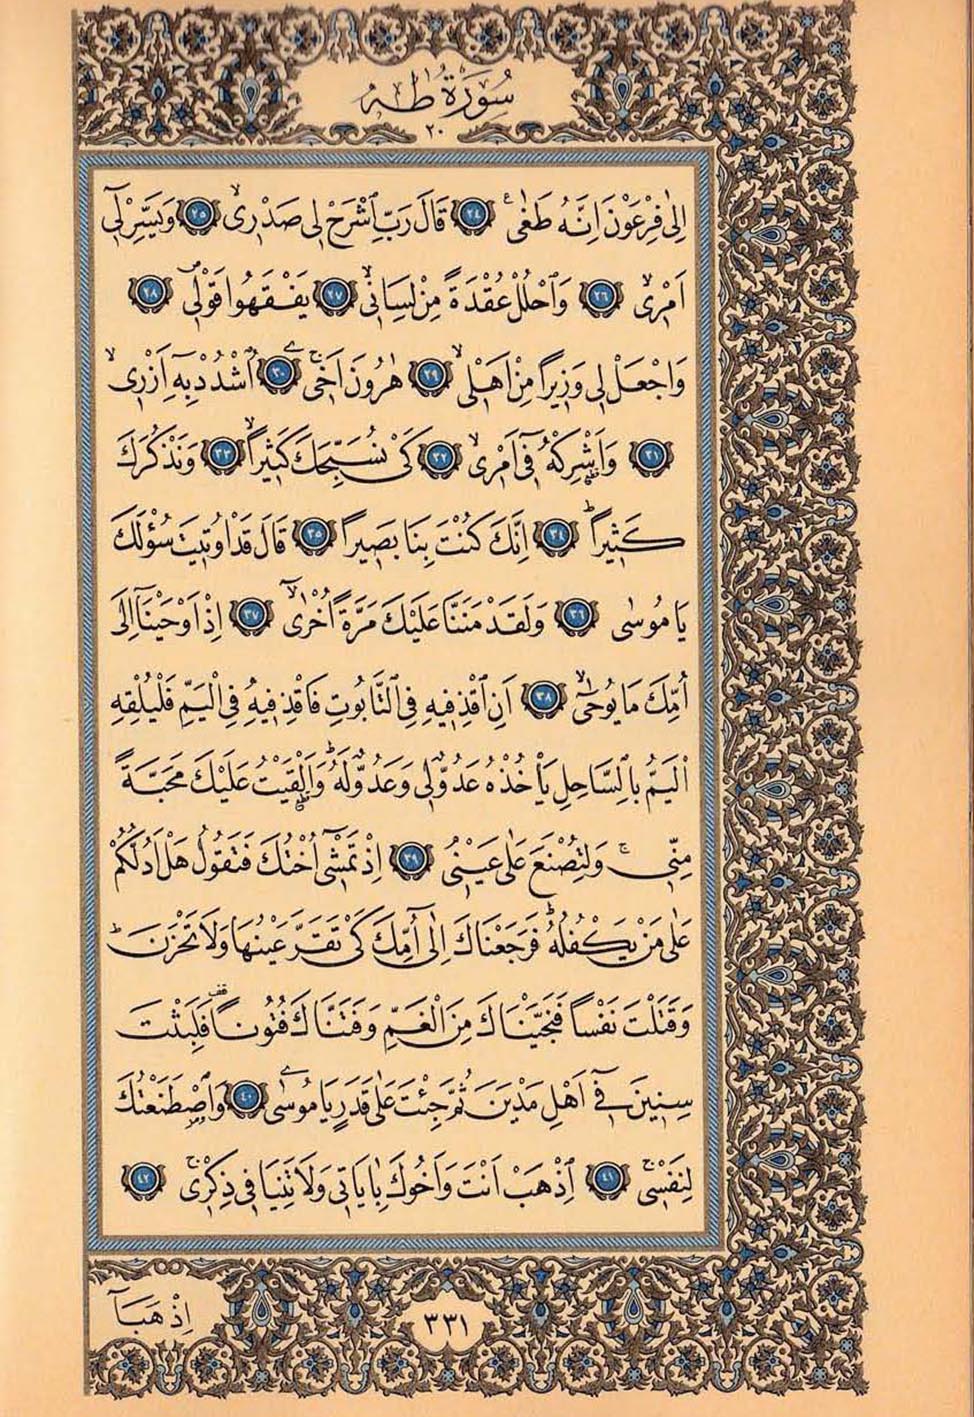 سُورَةُ طٰهٰ
٢٠
اِلٰى فِرْعَوْنَ اِنَّهُ طَغٰى ۟ ﴿٢٤﴾ قَالَ رَبِّ اشْرَحْ لِى صَدْرِىۙ ﴿٢٥﴾ وَيَسِّرْ لِٓى
اَمْرِىۙ ﴿٢٦﴾ وَاحْلُلْ عُقْدَةً مِنْ لِسَانِىۙ ﴿٢٧﴾ يَفْقَهُوا قَوْلِىۖ ﴿٢٨﴾
وَاجْعَلْ لِى وَزِيرًا مِنْ اَهْلِىۙ ﴿٢٩﴾ هٰرُونَ اَخِىۚ ﴿٣٠﴾ اُشْدُدْ بِهٓ اَزْرِىۙ
﴿٣١﴾ وَاَشْرِكْهُ فِٓى اَمْرِىۙ ﴿٣٢﴾ كَىْ نُسَبِّحَكَ كَثِيرًاۙ ﴿٣٣﴾ وَنَذْكُرَكَ
كَثِيرًاۜ ﴿٣٤﴾ اِنَّكَ كُنْتَ بِنَا بَصِيرًا ﴿٣٥﴾ قَالَ قَدْ اُوتِيتَ سُؤْلَكَ
يَا مُوسٰى ﴿٣٦﴾ وَلَقَدْ مَنَنَّا عَلَيْكَ مَرَّةً اُخْرٰىۙ ﴿٣٧﴾ اِذْ اَوْحَيْنَٓا اِلٰٓى
اُمِّكَ مَا يُوحٰىۙ ﴿٣٨﴾ اَنِ اقْذِفِيهِ فِى التَّابُوتِ فَاقْذِفِيهِ فِى الْيَمِّ فَلْيُلْقِهِ
الْيَمُّ بِالسَّاحِلِ يَأْخُذْهُ عَدُوٌّ لِى وَعَدُوٌّ لَهُۜ وَاَلْقَيْتُ عَلَيْكَ مَحَبَّةً
مِنِّىۚ وَلِتُصْنَعَ عَلٰى عَيْنِىۢ ﴿٣٩﴾ اِذْ تَمْشِٓى اُخْتُكَ فَتَقُولُ هَلْ اَدُلُّكُمْ
عَلٰى مَنْ يَكْفُلُهُۜ فَرَجَعْنَاكَ اِلٰٓى اُمِّكَ كَىْ تَقَرَّ عَيْنُهَا وَلَا تَحْزَنَۜ
وَقَتَلْتَ نَفْسًا فَنَجَّيْنَاكَ مِنَ الْغَمِّ وَفَتَنَّاكَ فُتُونًا۠ فَلَبِثْتَ
سِنِينَ فِٓى اَهْلِ مَدْيَنَ ثُمَّ جِئْتَ عَلٰى قَدَرٍ يَا مُوسٰى ﴿٤٠﴾ وَاصْطَنَعْتُكَ
لِنَفْسِىۚ ﴿٤١﴾ اِذْهَبْ اَنْتَ وَاَخُوكَ بِاٰيَاتِى وَلَا تَنِيَا فِى ذِكْرِىۚ ﴿٤٢﴾
اِذْهَبَٓا
٣٣١